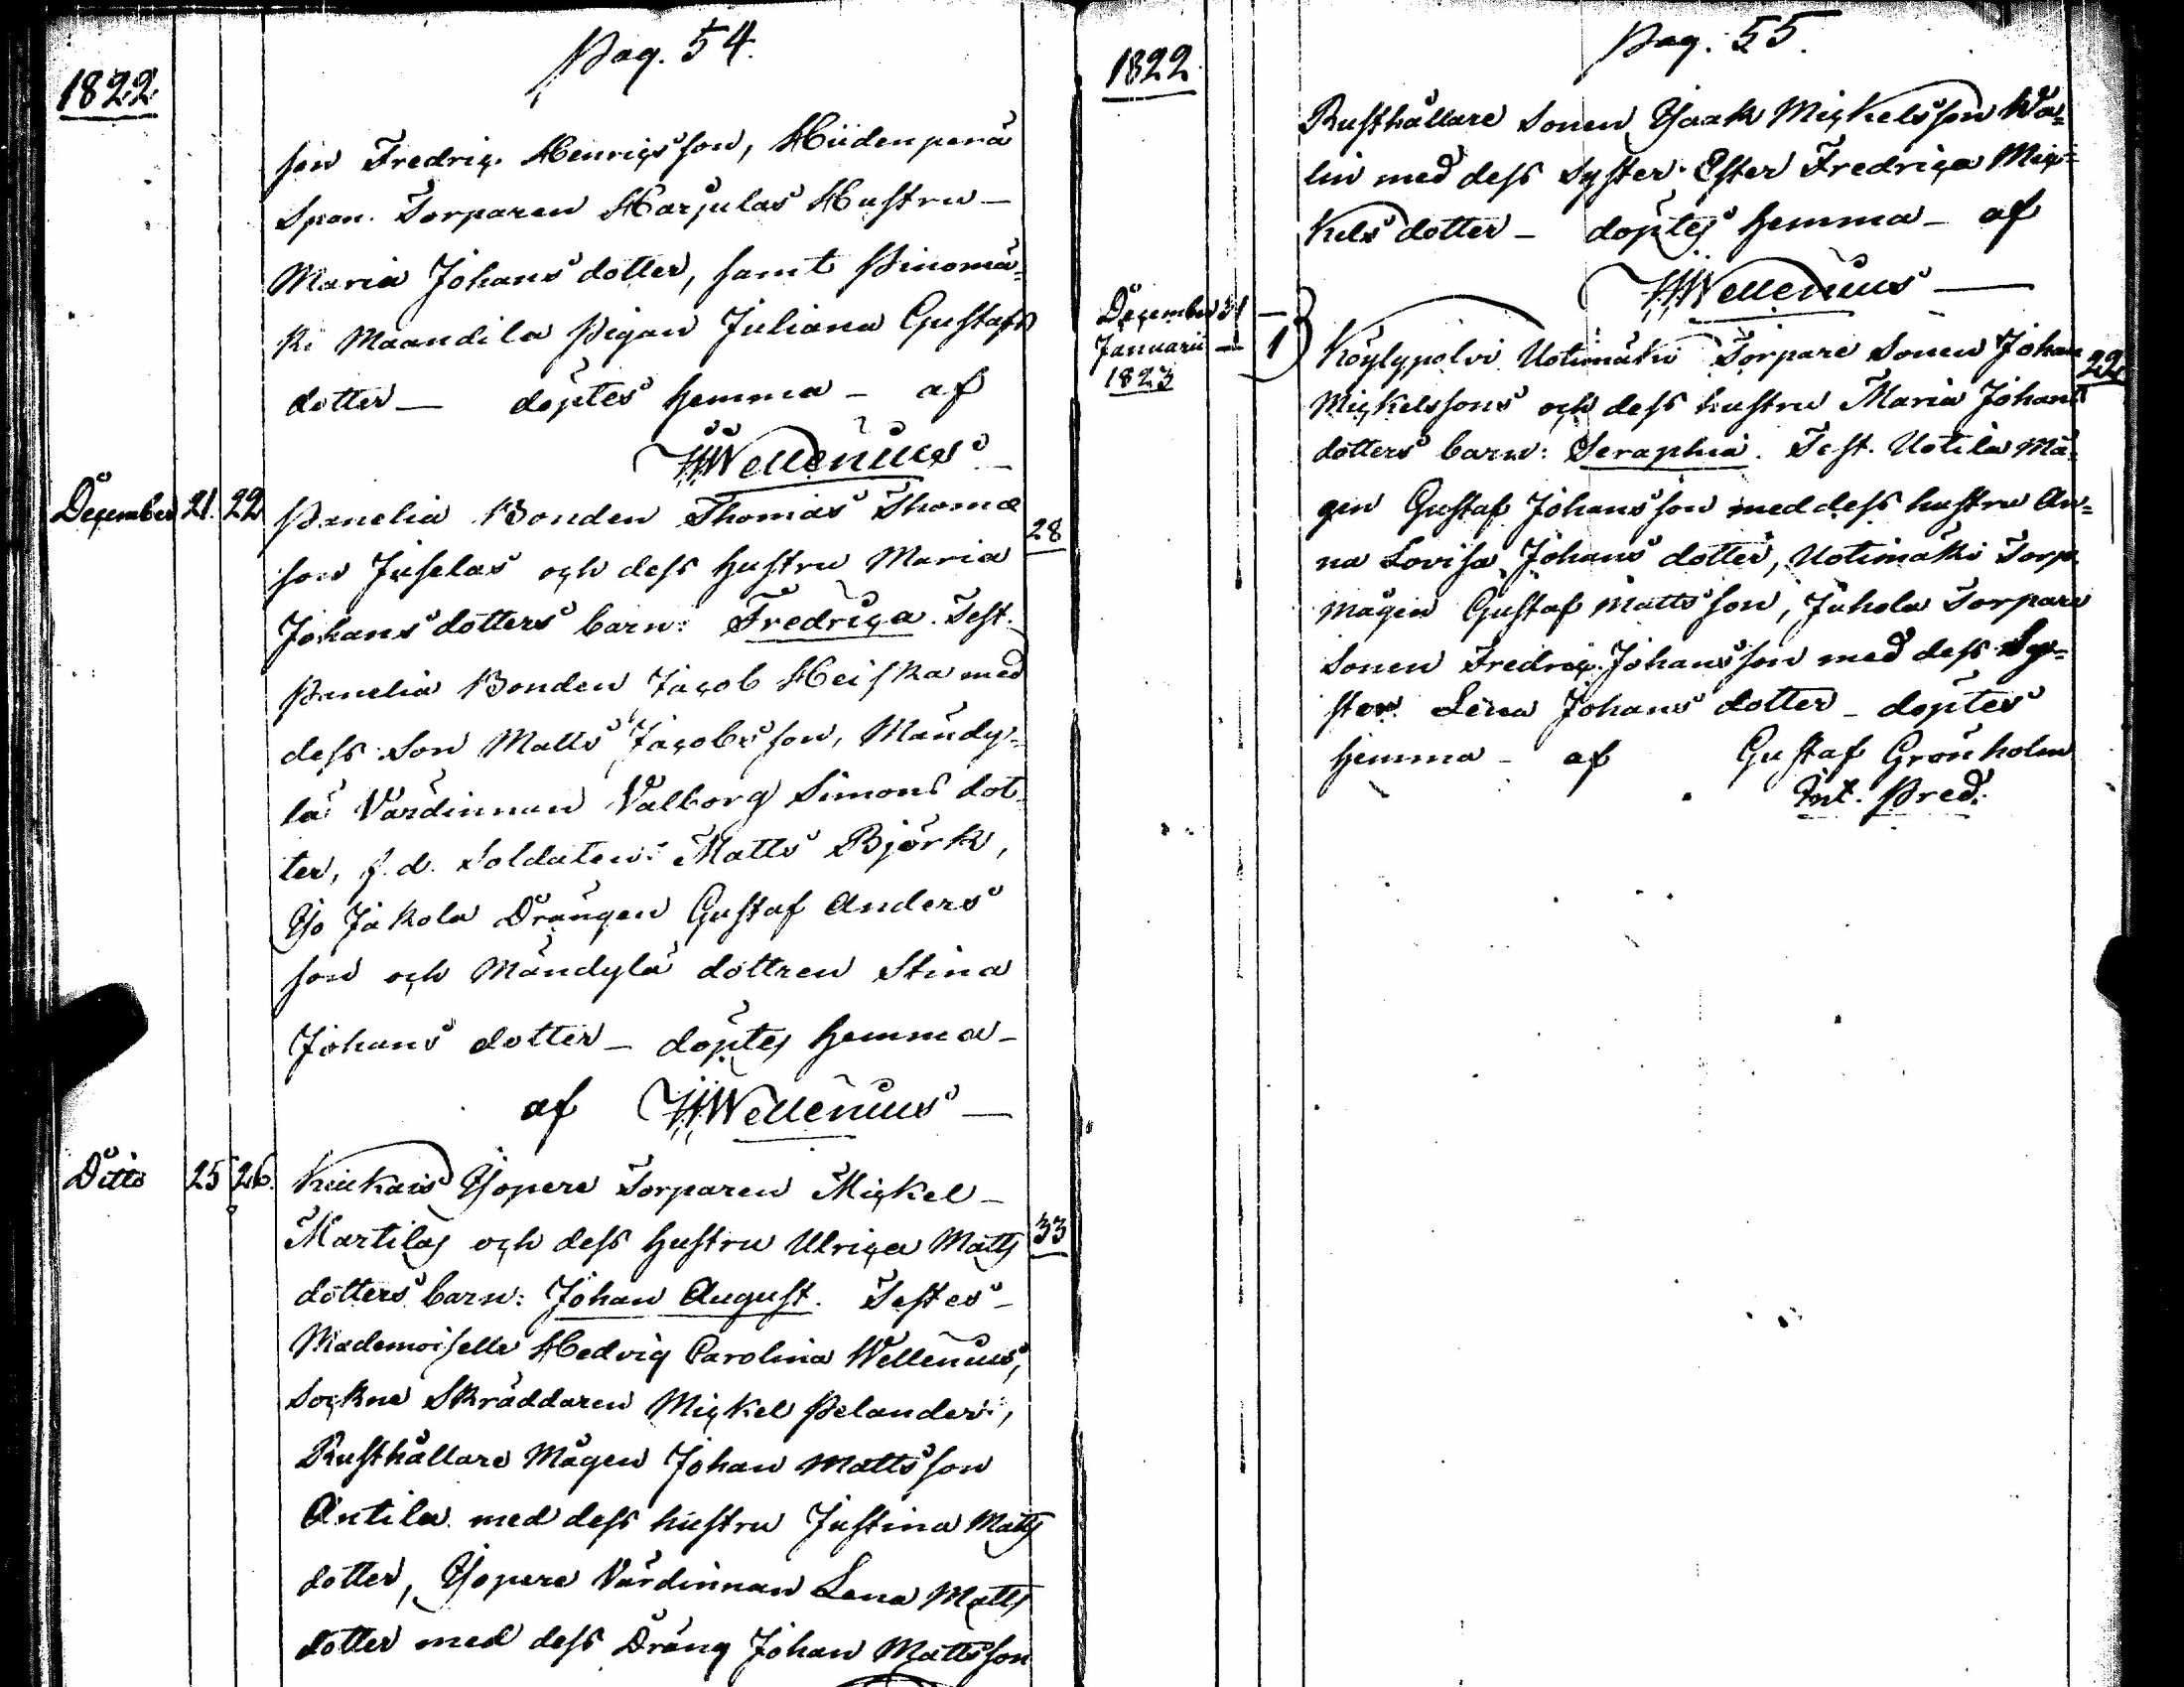 Pag. 54.
1822
son Fredric Henricsson, Hiidenperä
Spon. Torparen Harjulas Hustru —
Maria Johansdotter, samt Pinomä-
ki Maandila Pigan Juliana Gustafs
dotter — döptes hemma — af
HWellenius
December 21. 22
Panelia Bonden Thomas Thomæ
28
son Juselas och dess hustru Maria
Johansdotters barn: Fredrica. Test.
Panelia Bonden Jacob Heiska med
dess Son Matts Jacobsson, Mändy-
lä Värdinnan Valborg Simonsdot-
ter, f.d. Soldaten Matts Björk,
Yo Jakola Drängen Gustaf Anders
son och Mändylä dottren Stina
Johansdotter — döptes hemma —
af HWellenius —
Ditto 25 26.
Kiukais Yopere Torparen Mickel —
Martilas och dess hustru Ulrica Matts
33
dotters barn: Johan August. Testes —
Mademoiselle Hedvig Carolina Wellenius,
Sockne Skräddaren Mickel Pelander,
Rusthållare Mågen Johan Mattsson
Antila med dess hustru Justina Matts
dotter, Yopere Värdinnan Lena Matts
dotter med dess Dräng Johan Mattsson
Pag. 55.
1822
Rusthållare Sonen Isaak Mickelsson Wä-
lin med dess Syster Ester Fredrica Mic-
kelsdotter — döptes hemma — af
HWellenius —
December 31 —
Januarii — 1
1823
Köylypolvi Uotimäki Torpare Sonen Johan
22
Mickelssons och dess hustru Maria Johans
dotters barn: Seraphia. Test. Uotila Må-
gen Gustaf Johansson med dess hustru An-
na Lovisa Johansdotter, Uotimäki Torp.
mågen Gustaf Mattsson, Juhola Torpare
Sonen Fredric Johansson med dess Sy-
ster Lena Johansdotter — döptes
hemma — af Gustaf Grönholm
Ext. Pred.